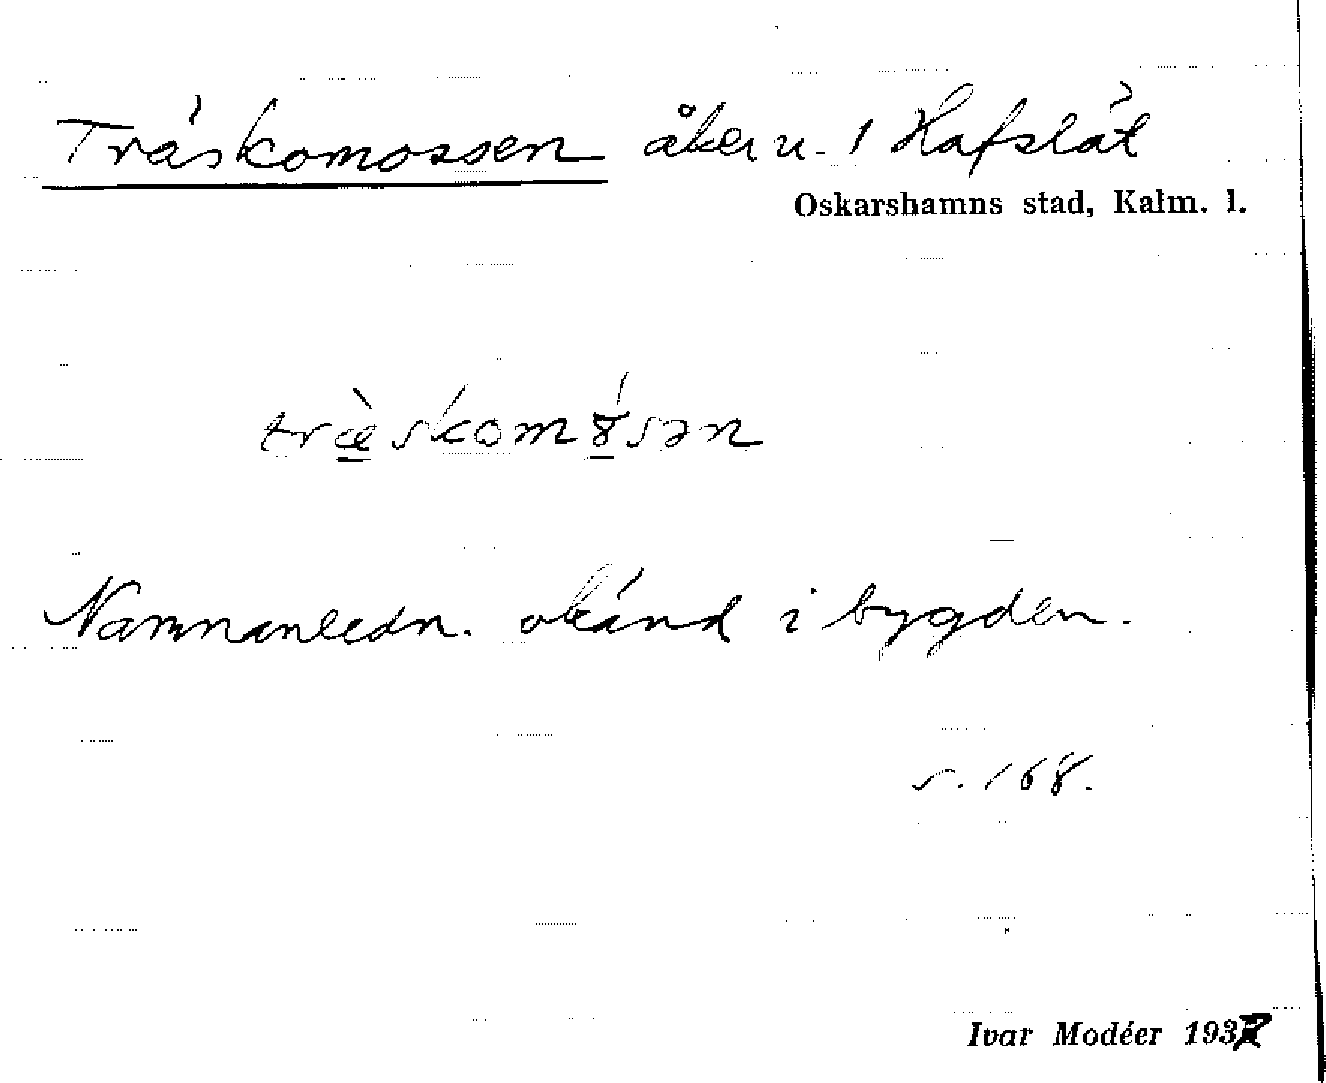 Träskomossen åker u. 1 Hafslät
Oskarshamns stad, Kalm. l.
træ̀skomɤ́sən
Namnanledn. okänd i bygden.
s. 168.
Ivar Modéer 1937